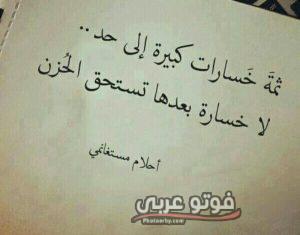 ثمةَ خَسارات كبيرة إلى حد..
لا خسارة بعدها تستحق الحُزن
أحلام مستغانمي
فوتو عربي
Photoarby.com